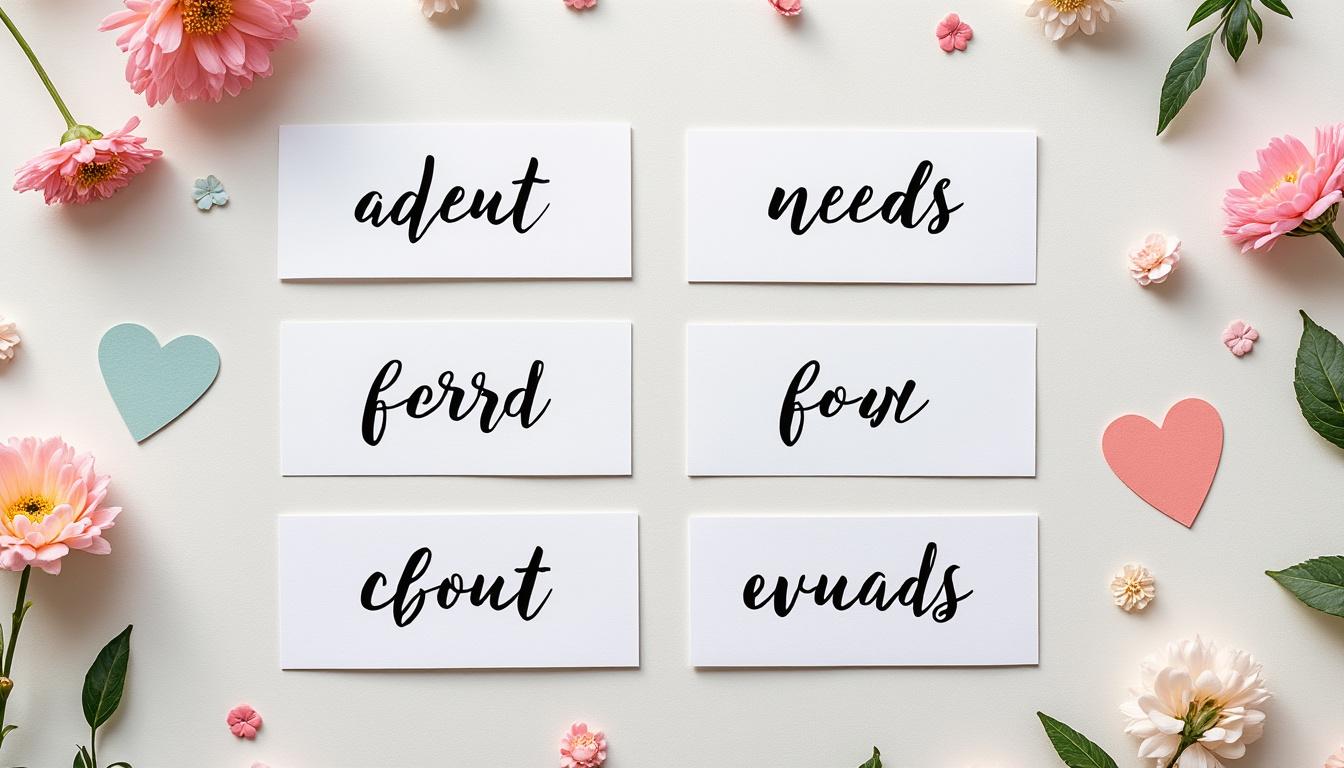 adeut needs
ferrd
cfout evuads